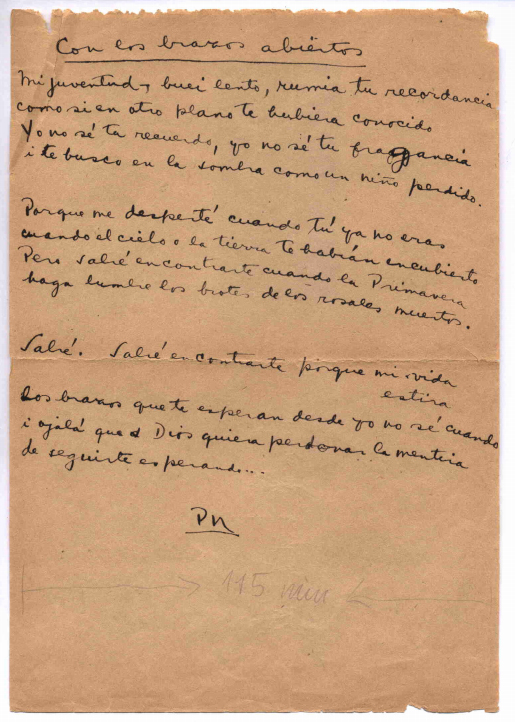 Con los brazos abiertos
Mi juventud, buei lento, rumia tu recordancia
como si en otro plano te hubiera conocido
Yo no sé tu recuerdo, yo no sé tu fragancia
i te busco en la sombra como un niño perdido.
Porque me desperté cuando tú ya no eras
cuando el cielo o la tierra te habían encubierto
Pero sabré encontrarte cuando la Primavera
haga lumbre los brotes de los rosales muertos.
Sabré. Sabré encontrarte porque mi vida
estira
los brazos que te esperan desde yo no sé cuando
i ojalá que Dios quiera perdonar la mentira
de seguirte esperando...
PN
115 mm